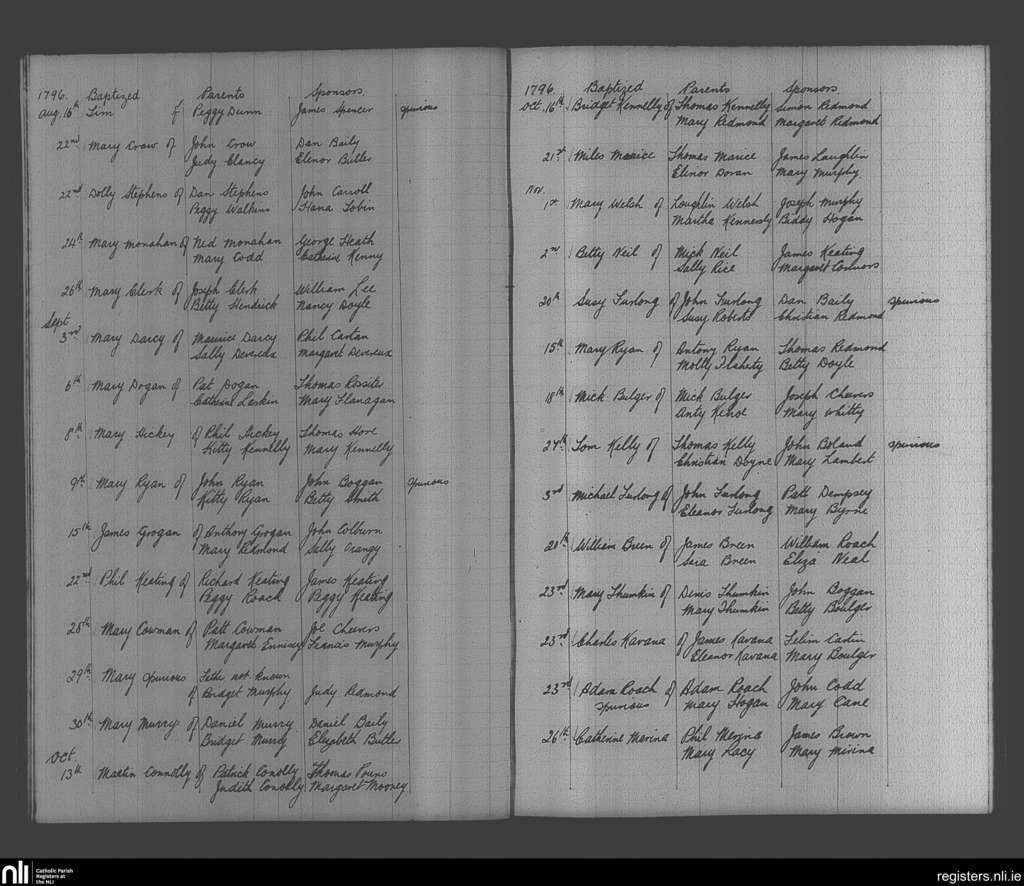 1796. Baptized Parents Sponsors
Aug. 16th Tim of Peggy Dunn James Spencer spurious
22nd Mary Crow of John Crow Dan Baily
Judy Clancy Elinor Butler
22nd Dolly Stephens of Dan Stephens John Carroll
Peggy Walkins Hana Tobin
24th Mary Monahan of Ned Monahan George Heath
Mary Codd Catherine Kenny
26th Mary Clerk of Joseph Clerk William Lee
Betty Hendrick Nancy Doyle
Sept.
3rd Mary Darcy of Maurice Darcy Phil Carton
Sally Devereux Margaret Devereux
6th Mary Dogan of Pat Dogan Thomas Rossiter
Catherine Larkin Mary Flanagan
8th Mary Hickey of Phil Hickey Thomas Hore
Kitty Kennelly Mary Kennelly
9th Mary Ryan of John Ryan John Boggan spurious
Kitty Ryan Betty Smith
15th James Grogan of Anthony Grogan John Colburn
Mary Redmond Sally Crangy
22nd Phil Keating of Richard Keating James Keating
Peggy Roach Peggy Keating
28th Mary Cowman of Patt Cowman Joe Cheevers
Margaret Ennisey Francis Murphy
29th Mary spurious Father not known
of Bridget Murphy Judy Redmond
30th Mary Murry of Daniel Murry Daniel Baily
Bridget Murry Elizabeth Butler
Oct.
13th Martin Connolly of Patrick Conolly Thomas Pouns
Judith Conolly Margaret Mooney
1796. Baptized Parents Sponsors
Oct. 16th Bridget Kennelly of Thomas Kennelly Simon Redmond
Mary Redmond Margaret Redmond
21st Miles Marice Thomas Marice James Laughlin
Elinor Doran Mary Murphy
Nov.
1st Mary Welsh of Loughlin Welsh Joseph Murphy
Martha Kennesly Biddy Hogan
2nd Betty Neil of Mick Neil James Keating
Sally Rice Margaret Connors
20th Susy Furlong of John Furlong Dan Baily spurious
Susy Roberts Christian Redmond
15th Mary Ryan of Antony Ryan Thomas Redmond
Molly Flaherty Betty Doyle
18th Mick Bulger of Mick Bulger Joseph Cheevers
Anty Kehoe Mary Whitty
24th Tom Kelly of Thomas Kelly John Boland spurious
Christian Doyne Mary Lambert
3rd Michael Furlong of John Furlong Patt Dempsey
Eleanor Furlong Mary Byrne
20th William Breen of James Breen William Roach
Sara Breen Eliza Neal
23rd Mary Thumkin of Denis Thumkin John Boggan
Mary Thumkin Betty Boulger
23rd Charles Kavana of James Kavana Felim Carten
Eleanor Kavana Mary Boulger
23rd Adam Roach of Adam Roach John Codd
spurious Mary Hogan Mary Cane
26th Catherine Merina Phil Merina James Brown
Mary Lacy Mary Mirina
nli Catholic Parish
Registers at
the NLI
registers.nli.ie